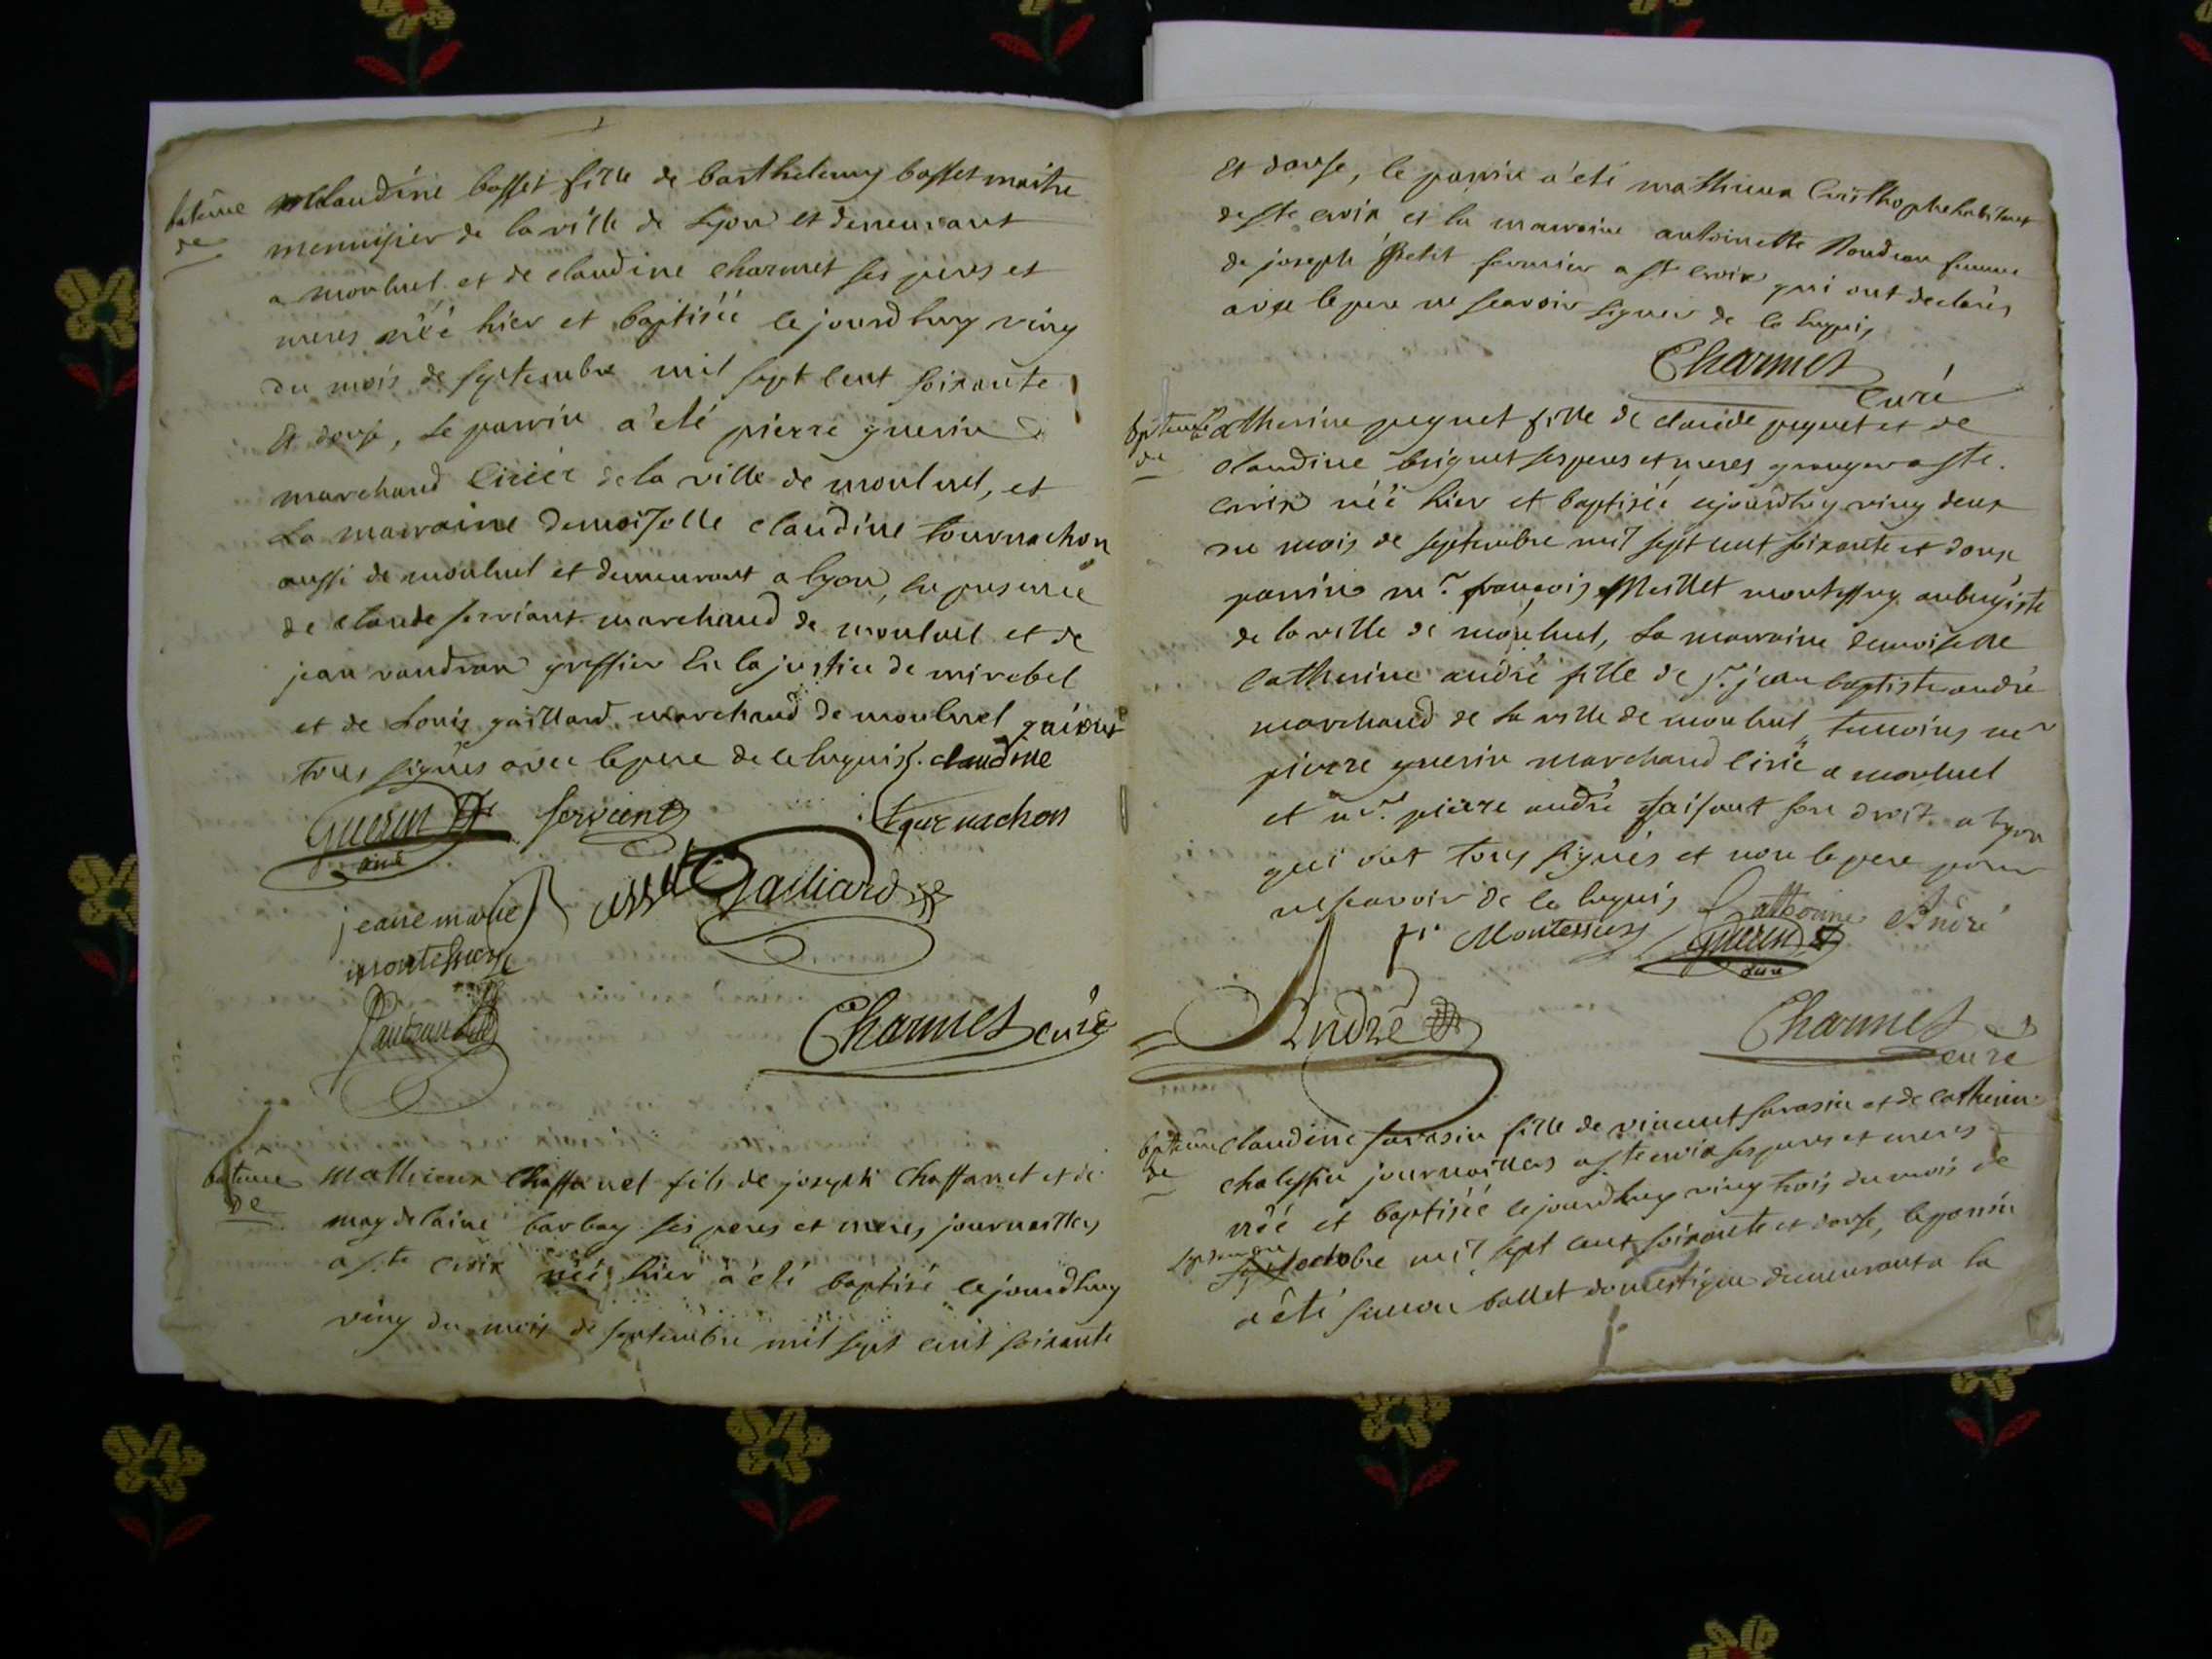 batême
de
Claudine basset fille de barthelemy basset maitre
menuisier de la ville de Lyon et demeurant
a monluel et de claudine charmet ses peres et
meres néé hier et baptiséé cejourdhuy ving
du mois de septembre mil sept cent soixante
Et douse, Le parrin a été pierre guerin
marchand Cirier de la ville de monluel, et
La marraine demoiselle claudine tournachon
aussi de monluel et demeurant a lyon, en presence
de claude servient marchand de monluel et de
jean vaudran greffier En la justice de mirebel
et de Louis gaillard marchand de monluel qui ont
tous signés avec le pere de ce Enquis. claudine
Guerin Servient tournachon
ainé
Gailliard
jeane marie
montessuy
Charmet curé
batême
de
Mathieux Chaffanet fils de joseph Chaffanet et de
magdelaine barbay ses peres et meres, journaillers
a ste croix néé hier a été baptisé cejourdhuy
ving du mois de septembre mil sept cent soixante
Et douse, le parrin a été mathieux Cristhophe habitant
de ste croix et la marraine antoinette femme
de joseph Petit fermier a ste croix qui ont declarés
avec le pere ne scavoir signer de ce Enquis
Charmet
Curé
batême
de
Catherine peguet fille de claude peguet et de
Claudine briguet ses peres et meres granger a ste.
Croix néé hier et baptiséé cejourdhuy ving deux
du mois de septembre mil sept cent soixante et douse
parrin mr. françois Millet montessuy aubergiste
de la ville de monluel, La marraine demoiselle
Catherine andré fille de sr. jean baptiste andré
marchand de La ville de monluel, temoins mr
pierre guerin marchand Cirié a monluel
et mr. pierre andré faisant son droit a Lyon
qui ont tous signés et non le pere pour
ne scavoir de ce Enquis Catherine André
fr. Montessuy Guerin
ainé
André
Charmet
curé
batême
de
Claudine sarasin fille de vincent sarasin et de Catherine
chalessin journaillers a ste croix ses peres et meres
néé et baptiséé cejourdhuy ving trois du mois de
septembre
octobre mil sept cent soixante et douse, le parrin
a été simon ballet domestique demeurant a la